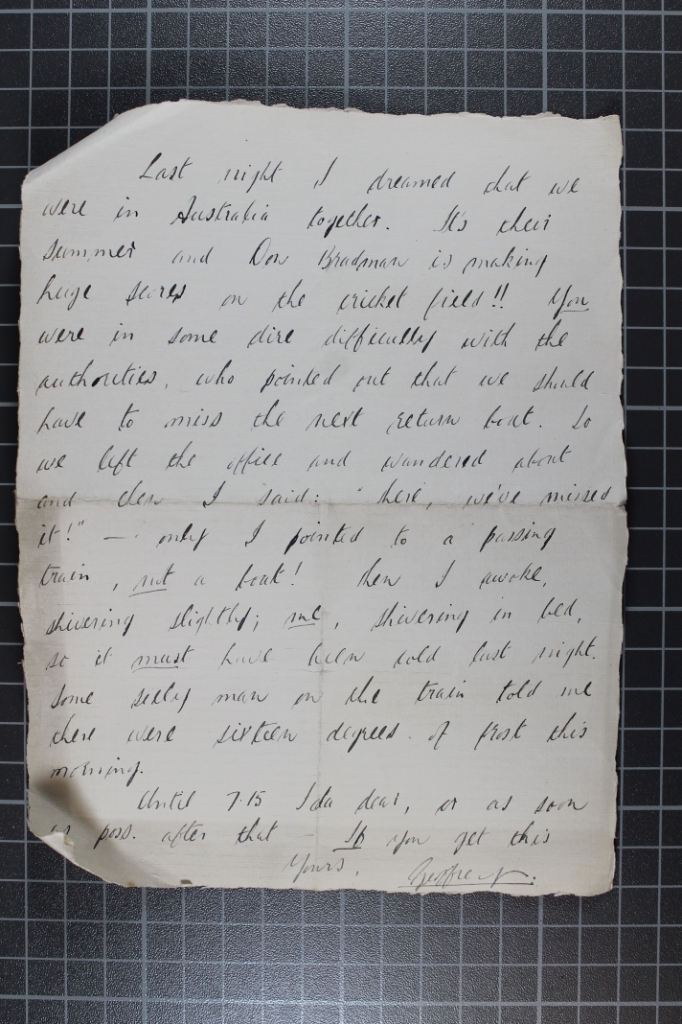 Last night I dreamed that we
were in Australia together. It's their
summer and Don Bradman is making
huge scores on the cricket field!! You
were in some dire difficulty with the
authorities, who pointed out that we should
have to miss the next return boat. So
we left the office and wandered about
and then I said: "there, we've missed
it!" — only I pointed to a passing
train, not a boat! Then I awoke,
shivering slightly; me, shivering in bed,
so it must have been cold last night.
Some silly man on the train told me
there were sixteen degrees of frost this
morning.
Until 7.15 Ida dear, or as soon
as poss. after that — If you get this
Yours,
Geoffrey.